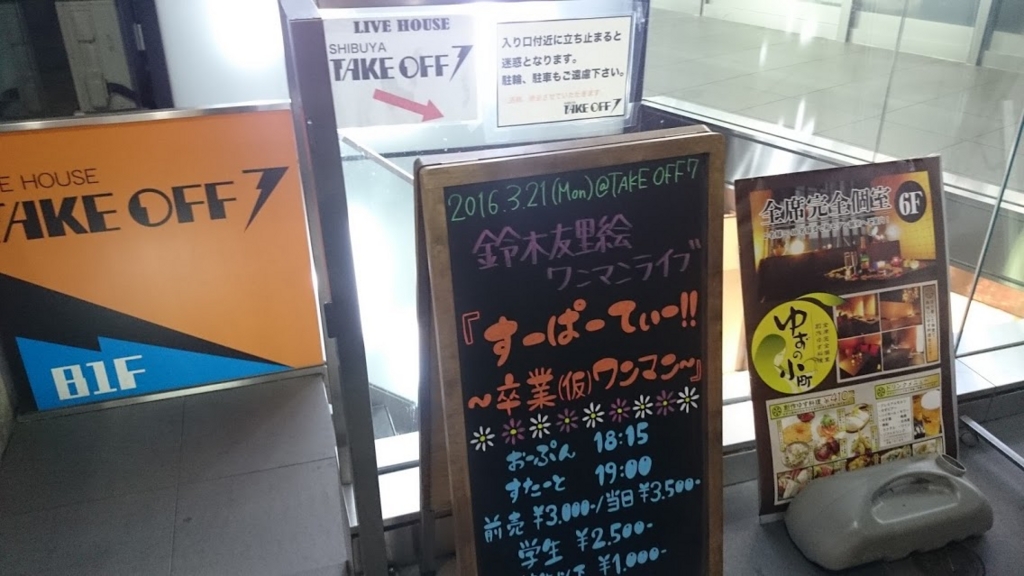 LIVE HOUSE
SHIBUYA
TAKE OFF 7
入り口付近に立ち止まると
迷惑となります。
駐輪、駐車もご遠慮下さい。
TAKE OFF 7
E HOUSE
TAKE OFF 7
B1F
2016.3.21(Mon)@TAKE OFF7
鈴木友里絵
ワンマンライブ
『すーぱーてぃー!!
～卒業(仮)ワンマン～』
おーぷん 18:15
すたーと 19:00
前売 ¥3,000-/当日¥3,500-
学生 ¥2,500-
¥1,000-
全席完全個室 6F
ゆずの小町